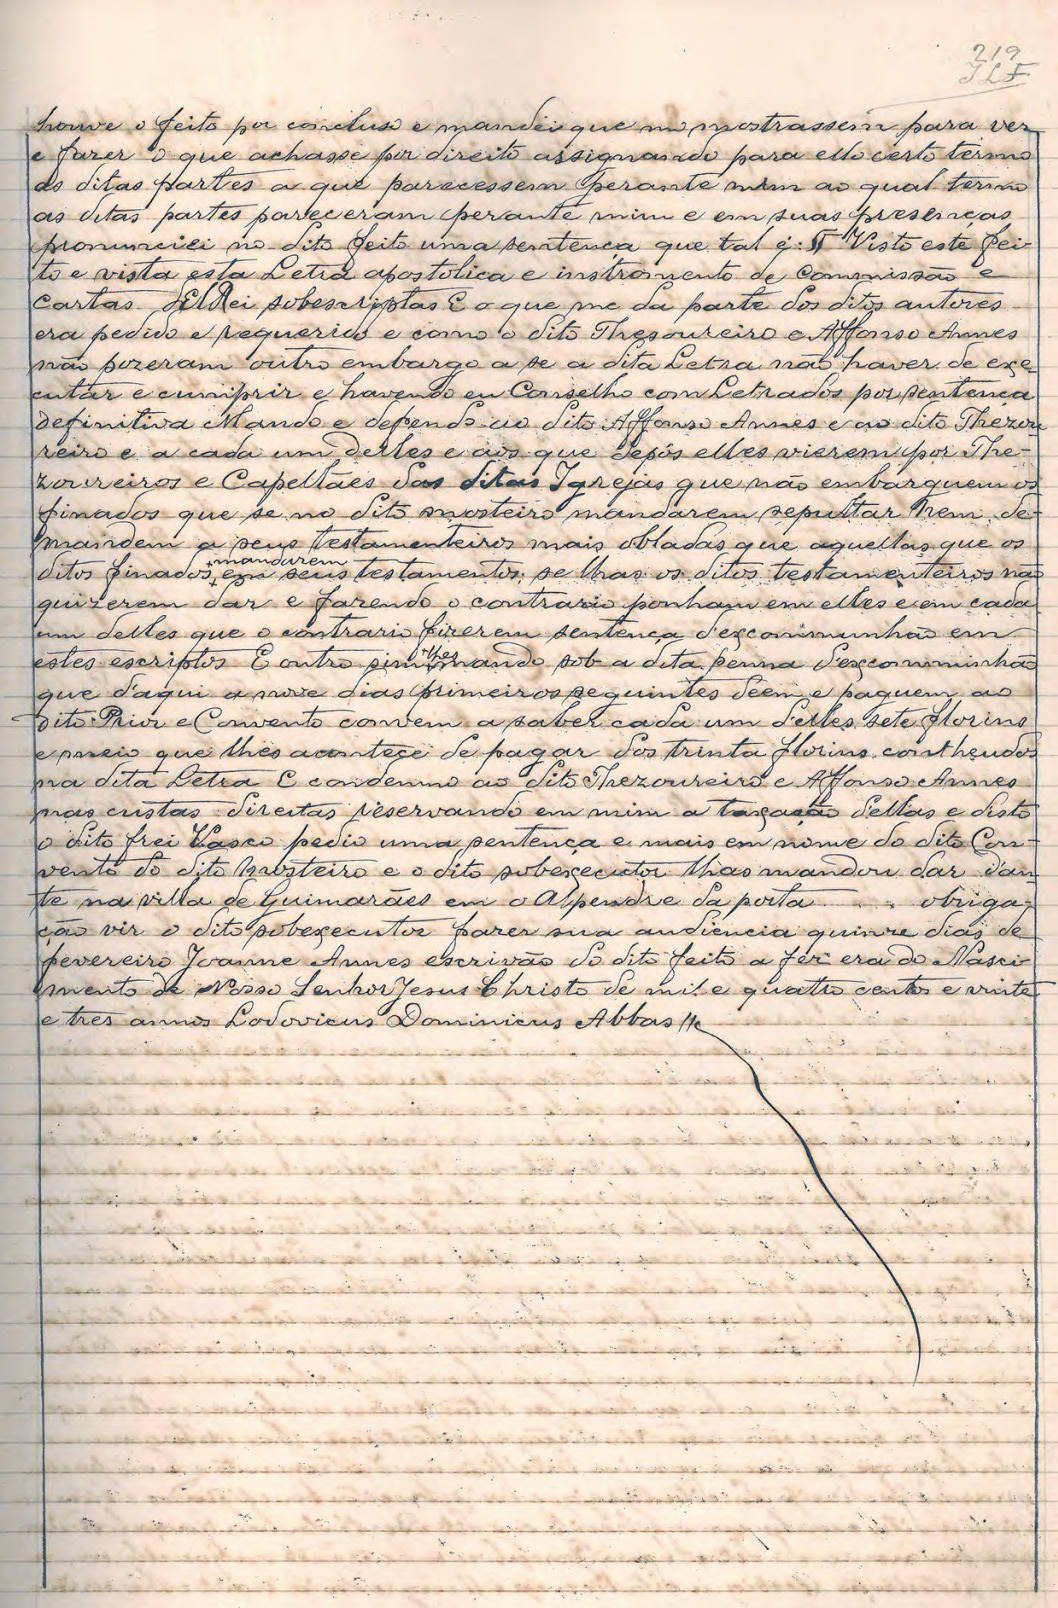 219
JLF
houve o feito por concluso e mandei que m'o mostrassem para ver
e fazer o que achasse por direito assignando para ello certo termo
ás ditas partes a que parecessem perante mim ao qual termo
as ditas partes pareceram perante mim e em suas presenças
pronunciei no dito feito uma sentença que tal é: ¶ Visto este fei-
to e vista esta Letra apostolica e instromento de Commissão e
Cartas d'ElRei sobescriptas E o que me da parte dos ditos autores
era pedido e requerido e como o dito Thesoureiro e Affonso Annes
não pozeram outro embargo a se a dita Letra não haver de exe-
cutar e cumprir e havendo eu Conselho com Letrados por sentença
definitiva Mando e defendo ao dito Affonso Annes e ao dito Thezou
reiro e a cada um delles e aos que depós elles vierem por The-
zoureiros e Capellães das ditas Igrejas que não embarguem os
finados que se no dito mosteiro mandarem sepultar Nem de-
mandem a seus testamenteiros mais obladas que aquellas que os
ditos finados + mandarem em seus testamentos, se lhas os ditos testamenteiros não
quizerem dar e fazendo o contrario ponham em elles e em cada
um delles que o contrario fizerem sentença d'excommunhão em
estes escriptos E outro sim lhes mando sob a dita penna d'excommunhão
que d'aqui a nove dias primeiros seguintes dêem e paguem ao
dito Prior e Convento convem a saber cada um d'elles sete florins
e meio que lhes acontece de pagar dos trinta florins contheudos
na dita Letra E condemno ao dito Thezoureiro e Affonso Annes
nas custas direitas reservando em mim a taxação dellas e disto
o dito frei Vasco pedio uma sentença e mais em nome do dito Con-
vento do dito Mosteiro e o dito sobexecutor lhas mandou dar dan-
te na villa de Guimarães em o Alpendre da porta . . . . obriga-
ção vir o dito sobexecutor fazer sua audiencia quinze dias de
fevereiro Joanne Annes escrivão do dito feito a fez era do Nasci-
mento de Nosso Senhor Jesus Christo de mil e quatro centos e vinte
e tres annos Lodovicus Dominicus Abbas